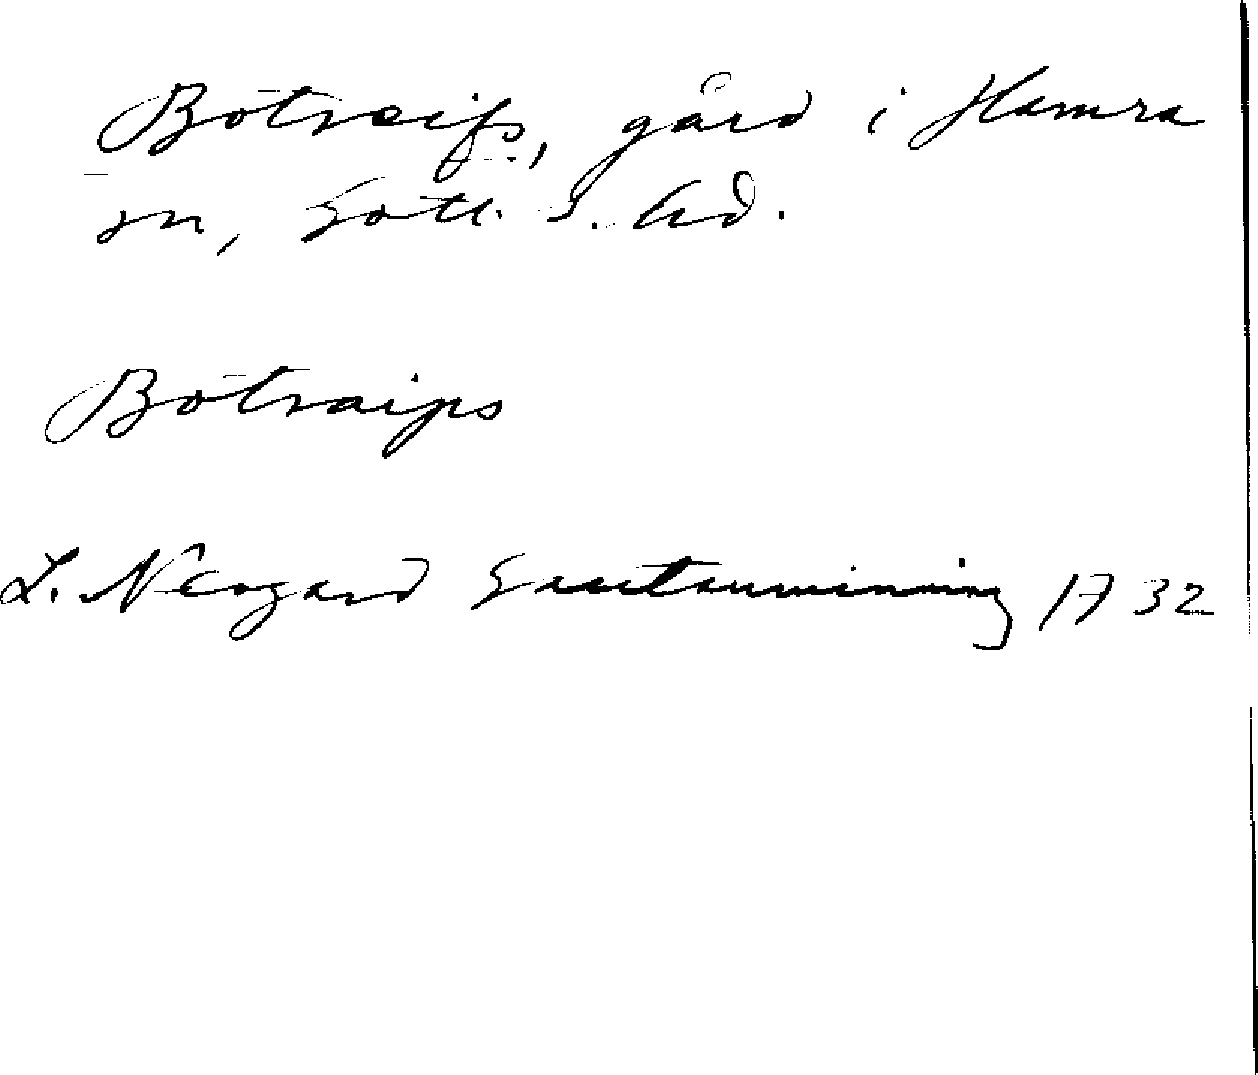 Botraifs, gård i Hamra
sn, Gotl. S. hd.
Botraips
L. Neogard Gautauminning 1732